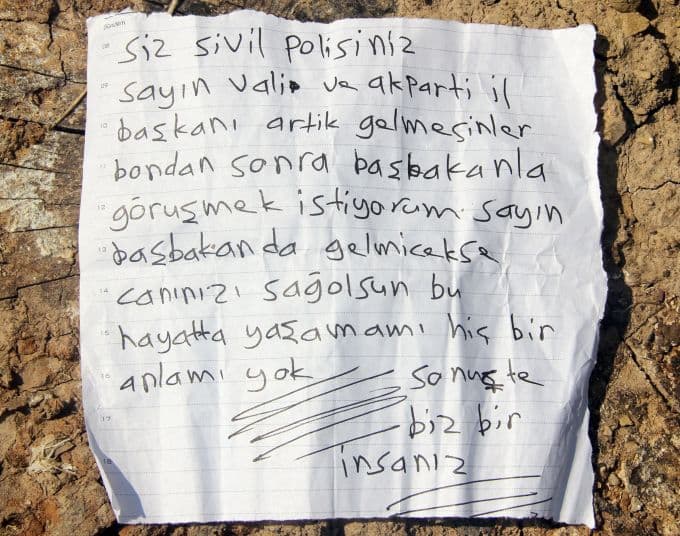 siz sivil polisiniz
sayın vali ve akparti il
başkanı artik gelmesinler
bondan sonra başbakanla
göruşmek istiyorum sayın
başbakan da gelmicekse
canınızı sağolsun bu
hayatta yaşamamı hiş bir
anlamı yok sonuşte
biz bir
insanız
08
09
10
11
12
13
14
15
16
17
18